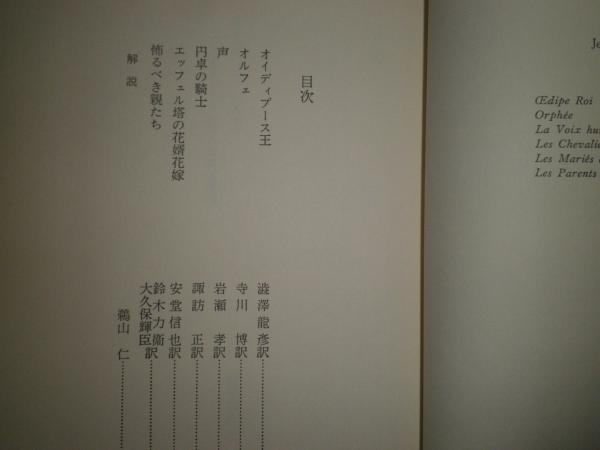 目次
オイディプース王 澁澤龍彦訳…………
オルフェ 寺川 博訳…………
声 岩瀬 孝訳…………
円卓の騎士 諏訪 正訳…………
エッフェル塔の花婿花嫁 安堂信也訳…………
怖るべき親たち 鈴木力衛 大久保輝臣訳…………
解説 鵜山 仁…………
Œdipe Roi
Orphée
La Voix
Les
Les Mariés
Les Parents